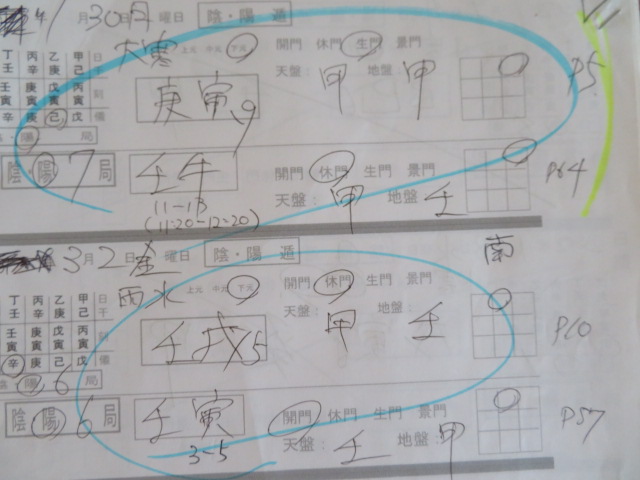 1月30日月曜日 陰・陽遁
大寒 上元 中元 下元 開門 休門 生門 景門
丁 丙 乙 甲 日
壬 辛 庚 己 干
庚寅9 天盤: 甲 地盤: 甲
P5
壬 庚 戊 丙 時
寅 寅 寅 寅
辛 庚 己 戊 儀
陰 陽 局
陰・陽 7 局 壬午 開門 休門 生門 景門
天盤: 甲 地盤 壬
P64
11-13
(11:20-12:20)
3月2日 曜日 陰・陽遁
南
雨水 上元 中元 下元 開門 休門 生門 景門
丁 丙 乙 甲 日
壬 辛 庚 己 干
壬戌15 天盤: 甲 地盤: 壬
P10
壬 庚 戊 丙
寅 寅 寅 寅
辛 庚 己 戊 儀
陰 陽 6 局
陰・陽 6 局 壬寅 開門 休門 生門 景門
天盤: 壬 地盤: 甲
P57
3-5